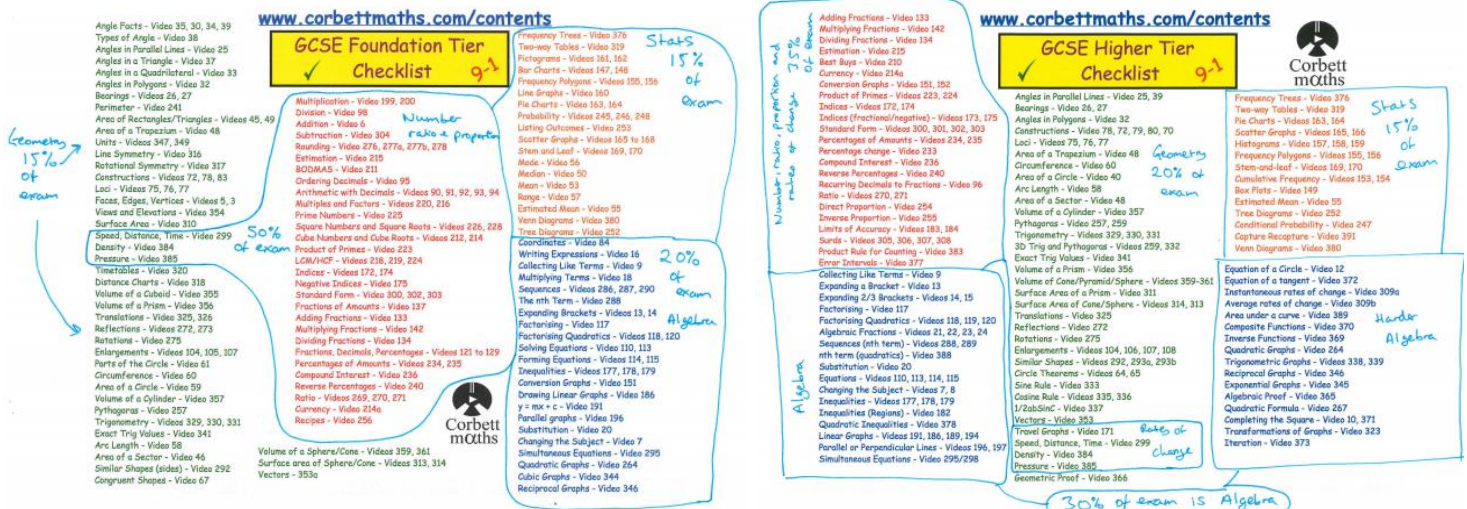 www.corbettmaths.com/contents
GCSE Foundation Tier
Checklist
9-1
Angle Facts - Video 35, 30, 34, 39
Types of Angle - Video 38
Angles in Parallel Lines - Video 25
Angles in a Triangle - Video 37
Angles in a Quadrilateral - Video 33
Angles in Polygons - Video 32
Bearings - Videos 26, 27
Perimeter - Video 241
Area of Rectangles/Triangles - Videos 45, 49
Area of a Trapezium - Video 48
Units - Videos 347, 349
Line Symmetry - Video 316
Rotational Symmetry - Video 317
Constructions - Videos 72, 78, 83
Loci - Videos 75, 76, 77
Faces, Edges, Vertices - Videos 5, 3
Views and Elevations - Video 354
Surface Area - Video 310
Speed, Distance, Time - Video 299
Density - Video 384
Pressure - Video 385
Timetables - Video 320
Distance Charts - Video 318
Volume of a Cuboid - Video 355
Volume of a Prism - Video 356
Translations - Video 325, 326
Reflections - Video 272, 273
Rotations - Video 275
Enlargements - Videos 104, 105, 107
Parts of the Circle - Video 61
Circumference - Video 60
Area of a Circle - Video 59
Volume of a Cylinder - Video 357
Pythagoras - Video 257
Trigonometry - Videos 329, 330, 331
Exact Trig Values - Video 341
Arc Length - Video 58
Area of a Sector - Video 46
Similar Shapes (sides) - Video 292
Congruent Shapes - Video 67
Geometry
15%
of
exam
Multiplication - Video 199, 200
Division - Video 98
Addition - Video 6
Subtraction - Video 304
Rounding - Video 276, 277a, 277b, 278
Estimation - Video 215
BODMAS - Video 211
Ordering Decimals - Video 95
Arithmetic with Decimals - Videos 90, 91, 92, 93, 94
Multiples and Factors - Videos 220, 216
Prime Numbers - Video 225
Square Numbers and Square Roots - Videos 226, 228
Cube Numbers and Cube Roots - Videos 212, 214
Product of Primes - Video 223
LCM/HCF - Videos 218, 219, 224
Indices - Videos 172, 174
Negative Indices - Video 175
Standard Form - Videos 300, 302, 303
Fractions of Amounts - Video 137
Adding Fractions - Video 133
Multiplying Fractions - Video 142
Dividing Fractions - Video 134
Fractions, Decimals, Percentages - Videos 121 to 129
Percentages of Amounts - Videos 234, 235
Compound Interest - Video 236
Reverse Percentages - Video 240
Ratio - Videos 269, 270, 271
Currency - Video 214a
Recipes - Video 256
Number
ratio & proportion
50%
of exam
Volume of a Sphere/Cone - Videos 359, 361
Surface area of Sphere/Cone - Videos 313, 314
Vectors - Videos 353a
Corbett
maths
Frequency Trees - Video 376
Two-way Tables - Video 319
Pictograms - Videos 161, 162
Bar Charts - Videos 147, 148
Frequency Polygons - Videos 155, 156
Line Graphs - Video 160
Pie Charts - Videos 163, 164
Probability - Videos 245, 246, 248
Listing Outcomes - Video 253
Scatter Graphs - Videos 165 to 168
Stem and Leaf - Videos 169, 170
Mode - Video 56
Median - Video 50
Mean - Video 53
Range - Video 57
Estimated Mean - Video 55
Venn Diagrams - Video 380
Tree Diagrams - Video 252
Stats
15%
of
exam
Coordinates - Video 84
Writing Expressions - Video 16
Collecting Like Terms - Video 9
Multiplying Terms - Video 18
Sequences - Videos 286, 287, 290
The nth Term - Video 288
Expanding Brackets - Videos 13, 14
Factorising - Video 117
Factorising Quadratics - Videos 118, 120
Solving Equations - Video 110, 113
Forming Equations - Video 114, 115
Inequalities - Videos 177, 178, 179
Conversion Graphs - Video 151
Drawing Linear Graphs - Video 186
y = mx + c - Video 191
Parallel graphs - Video 196
Substitution - Video 20
Changing the Subject - Video 7
Simultaneous Equations - Video 295
Quadratic Graphs - Video 264
Cubic Graphs - Video 344
Reciprocal Graphs - Video 346
20%
of
exam
Algebra
www.corbettmaths.com/contents
GCSE Higher Tier
Checklist
9-1
Corbett
maths
Number, ratio, proportion and
rates of change 35%
of exam
Adding Fractions - Video 133
Multiplying Fractions - Video 142
Dividing Fractions - Video 134
Estimation - Video 215
Best Buys - Video 210
Currency - Video 214a
Conversion Graphs - Video 151, 152
Product of Primes - Videos 223, 224
Indices - Videos 172, 174
Indices (fractional/negative) - Videos 173, 175
Standard Form - Videos 300, 301, 302, 303
Percentages of Amounts - Videos 234, 235
Percentage change - Video 233
Compound Interest - Video 236
Reverse Percentages - Video 240
Recurring Decimals to Fractions - Video 96
Ratio - Videos 270, 271
Direct Proportion - Video 254
Inverse Proportion - Video 255
Limits of Accuracy - Videos 183, 184
Surds - Videos 305, 306, 307, 308
Product Rule for Counting - Video 383
Error Intervals - Video 377
Collecting Like Terms - Video 9
Expanding a Bracket - Video 13
Expanding 2/3 Brackets - Videos 14, 15
Factorising - Video 117
Factorising Quadratics - Videos 118, 119, 120
Algebraic Fractions - Videos 21, 22, 23, 24
Sequences (nth term) - Videos 288, 289
nth term (quadratics) - Video 388
Substitution - Video 20
Equations - Videos 110, 113, 114, 115
Changing the Subject - Videos 7, 8
Inequalities - Videos 177, 178, 179
Inequalities (Regions) - Video 182
Quadratic Inequalities - Video 378
Linear Graphs - Videos 191, 186, 189, 194
Parallel or Perpendicular Lines - Videos 196, 197
Simultaneous Equations - Video 295/298
Algebra
Angles in Parallel Lines - Video 25, 39
Bearings - Video 26, 27
Angles in Polygons - Video 32
Constructions - Videos 78, 72, 79, 80, 70
Loci - Videos 75, 76, 77
Area of a Trapezium - Video 48
Circumference - Video 60
Area of a Circle - Video 40
Arc Length - Video 58
Area of a Sector - Video 48
Volume of a Cylinder - Video 357
Pythagoras - Video 257, 259
Trigonometry - Video 329, 330, 331
3D Trig and Pythagoras - Videos 259, 332
Exact Trig Values - Video 341
Volume of a Prism - Video 356
Volume of Cone/Pyramid/Sphere - Videos 359-361
Surface Area of a Prism - Video 311
Surface Area of Cone/Sphere - Videos 314, 313
Translations - Video 325
Reflections - Video 272
Rotations - Video 275
Enlargements - Videos 104, 106, 107, 108
Similar Shapes - Videos 292, 293a, 293b
Circle Theorems - Videos 64, 65
Sine Rule - Video 333
Cosine Rule - Videos 335, 336
1/2abSinC - Video 337
Vectors - Video 353
Travel Graphs - Video 171
Speed, Distance, Time - Video 299
Density - Video 384
Pressure - Video 385
Geometric Proof - Video 366
Geometry
20% of
exam
Rates of
change
Frequency Trees - Video 376
Two-way Tables - Video 319
Pie Charts - Videos 163, 164
Scatter Graphs - Videos 165, 166
Histograms - Videos 157, 158, 159
Frequency Polygons - Videos 155, 156
Stem-and-leaf - Videos 169, 170
Cumulative Frequency - Videos 153, 154
Box Plots - Video 149
Estimated Mean - Video 55
Tree Diagrams - Video 252
Conditional Probability - Video 247
Capture Recapture - Video 391
Venn Diagrams - Video 380
Stats
15%
of
exam
Equation of a Circle - Video 12
Equation of a tangent - Video 372
Instantaneous rates of change - Video 309a
Average rates of change - Video 309b
Area under a curve - Video 389
Composite Functions - Video 370
Inverse Functions - Video 369
Quadratic Graphs - Video 264
Trigonometric Graphs - Videos 338, 339
Reciprocal Graphs - Video 346
Exponential Graphs - Video 345
Algebraic Proof - Video 365
Quadratic Formula - Video 267
Completing the Square - Video 10, 371
Transformations of Graphs - Video 323
Iteration - Video 373
Harder
Algebra
30% of exam is Algebra